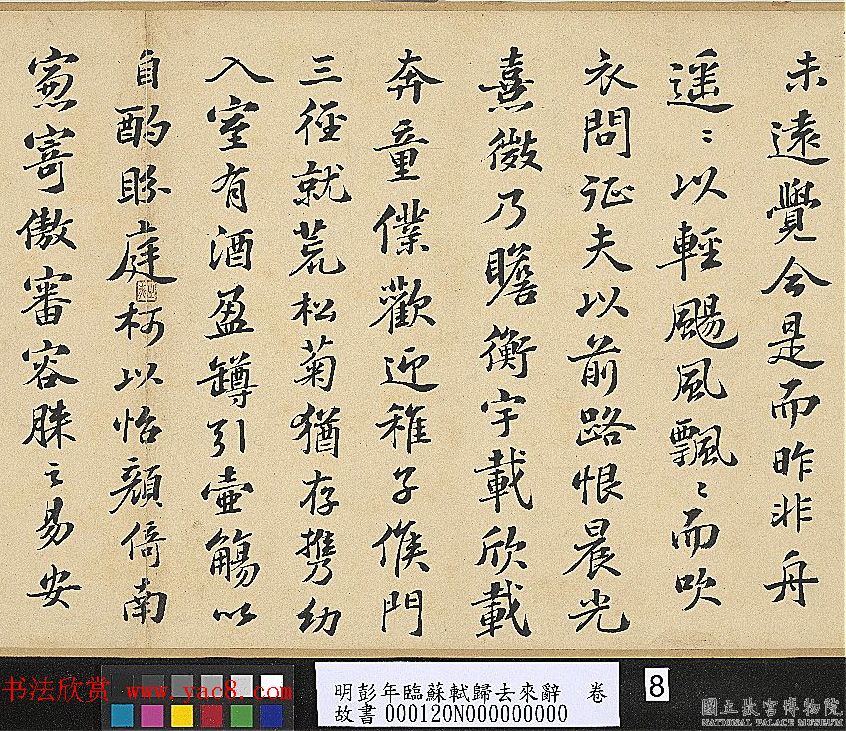 未遠覺今是而昨非舟
遥〻以輕颺風飄〻而吹
衣問征夫以前路恨晨光
熹微乃瞻衡宇載欣載
奔童僕歡迎稚子候門
三徑就荒松菊猶存携幼
入室有酒盈罇引壺觴以
自酌眄庭柯以怡顏倚南
窓寄傲審容膝之易安
书法欣赏 www.yac8.com
明彭年臨蘇軾歸去來辭 卷
故書 000120N000000000
8
國立故宮博物院
NATIONAL PALACE MUSEUM